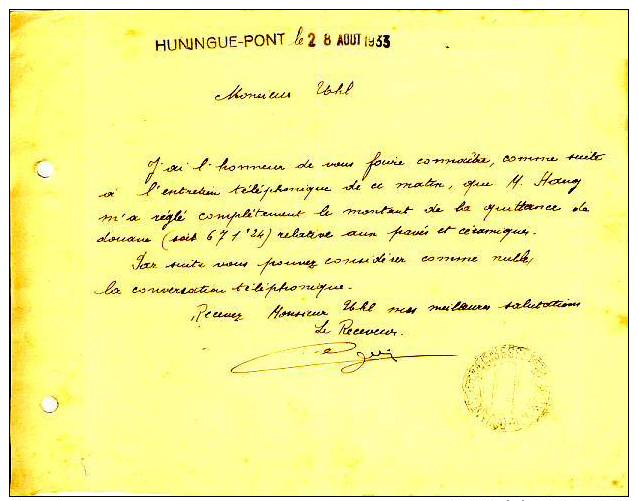 HUNINGUE-PONT le 28 AOUT 1933
Monsieur Uhl
J'ai l'honneur de vous faire connaître, comme suite
à l'entretien téléphonique de ce matin, que M. Haug
m'a réglé complètement le montant de la quittance de
douane (soit 671'24) relative aux pavés et céramiques.
Par suite vous pouvez considérer comme nulle,
la conversation téléphonique.
Recevez Monsieur Uhl mes meilleures salutations
Le Receveur.